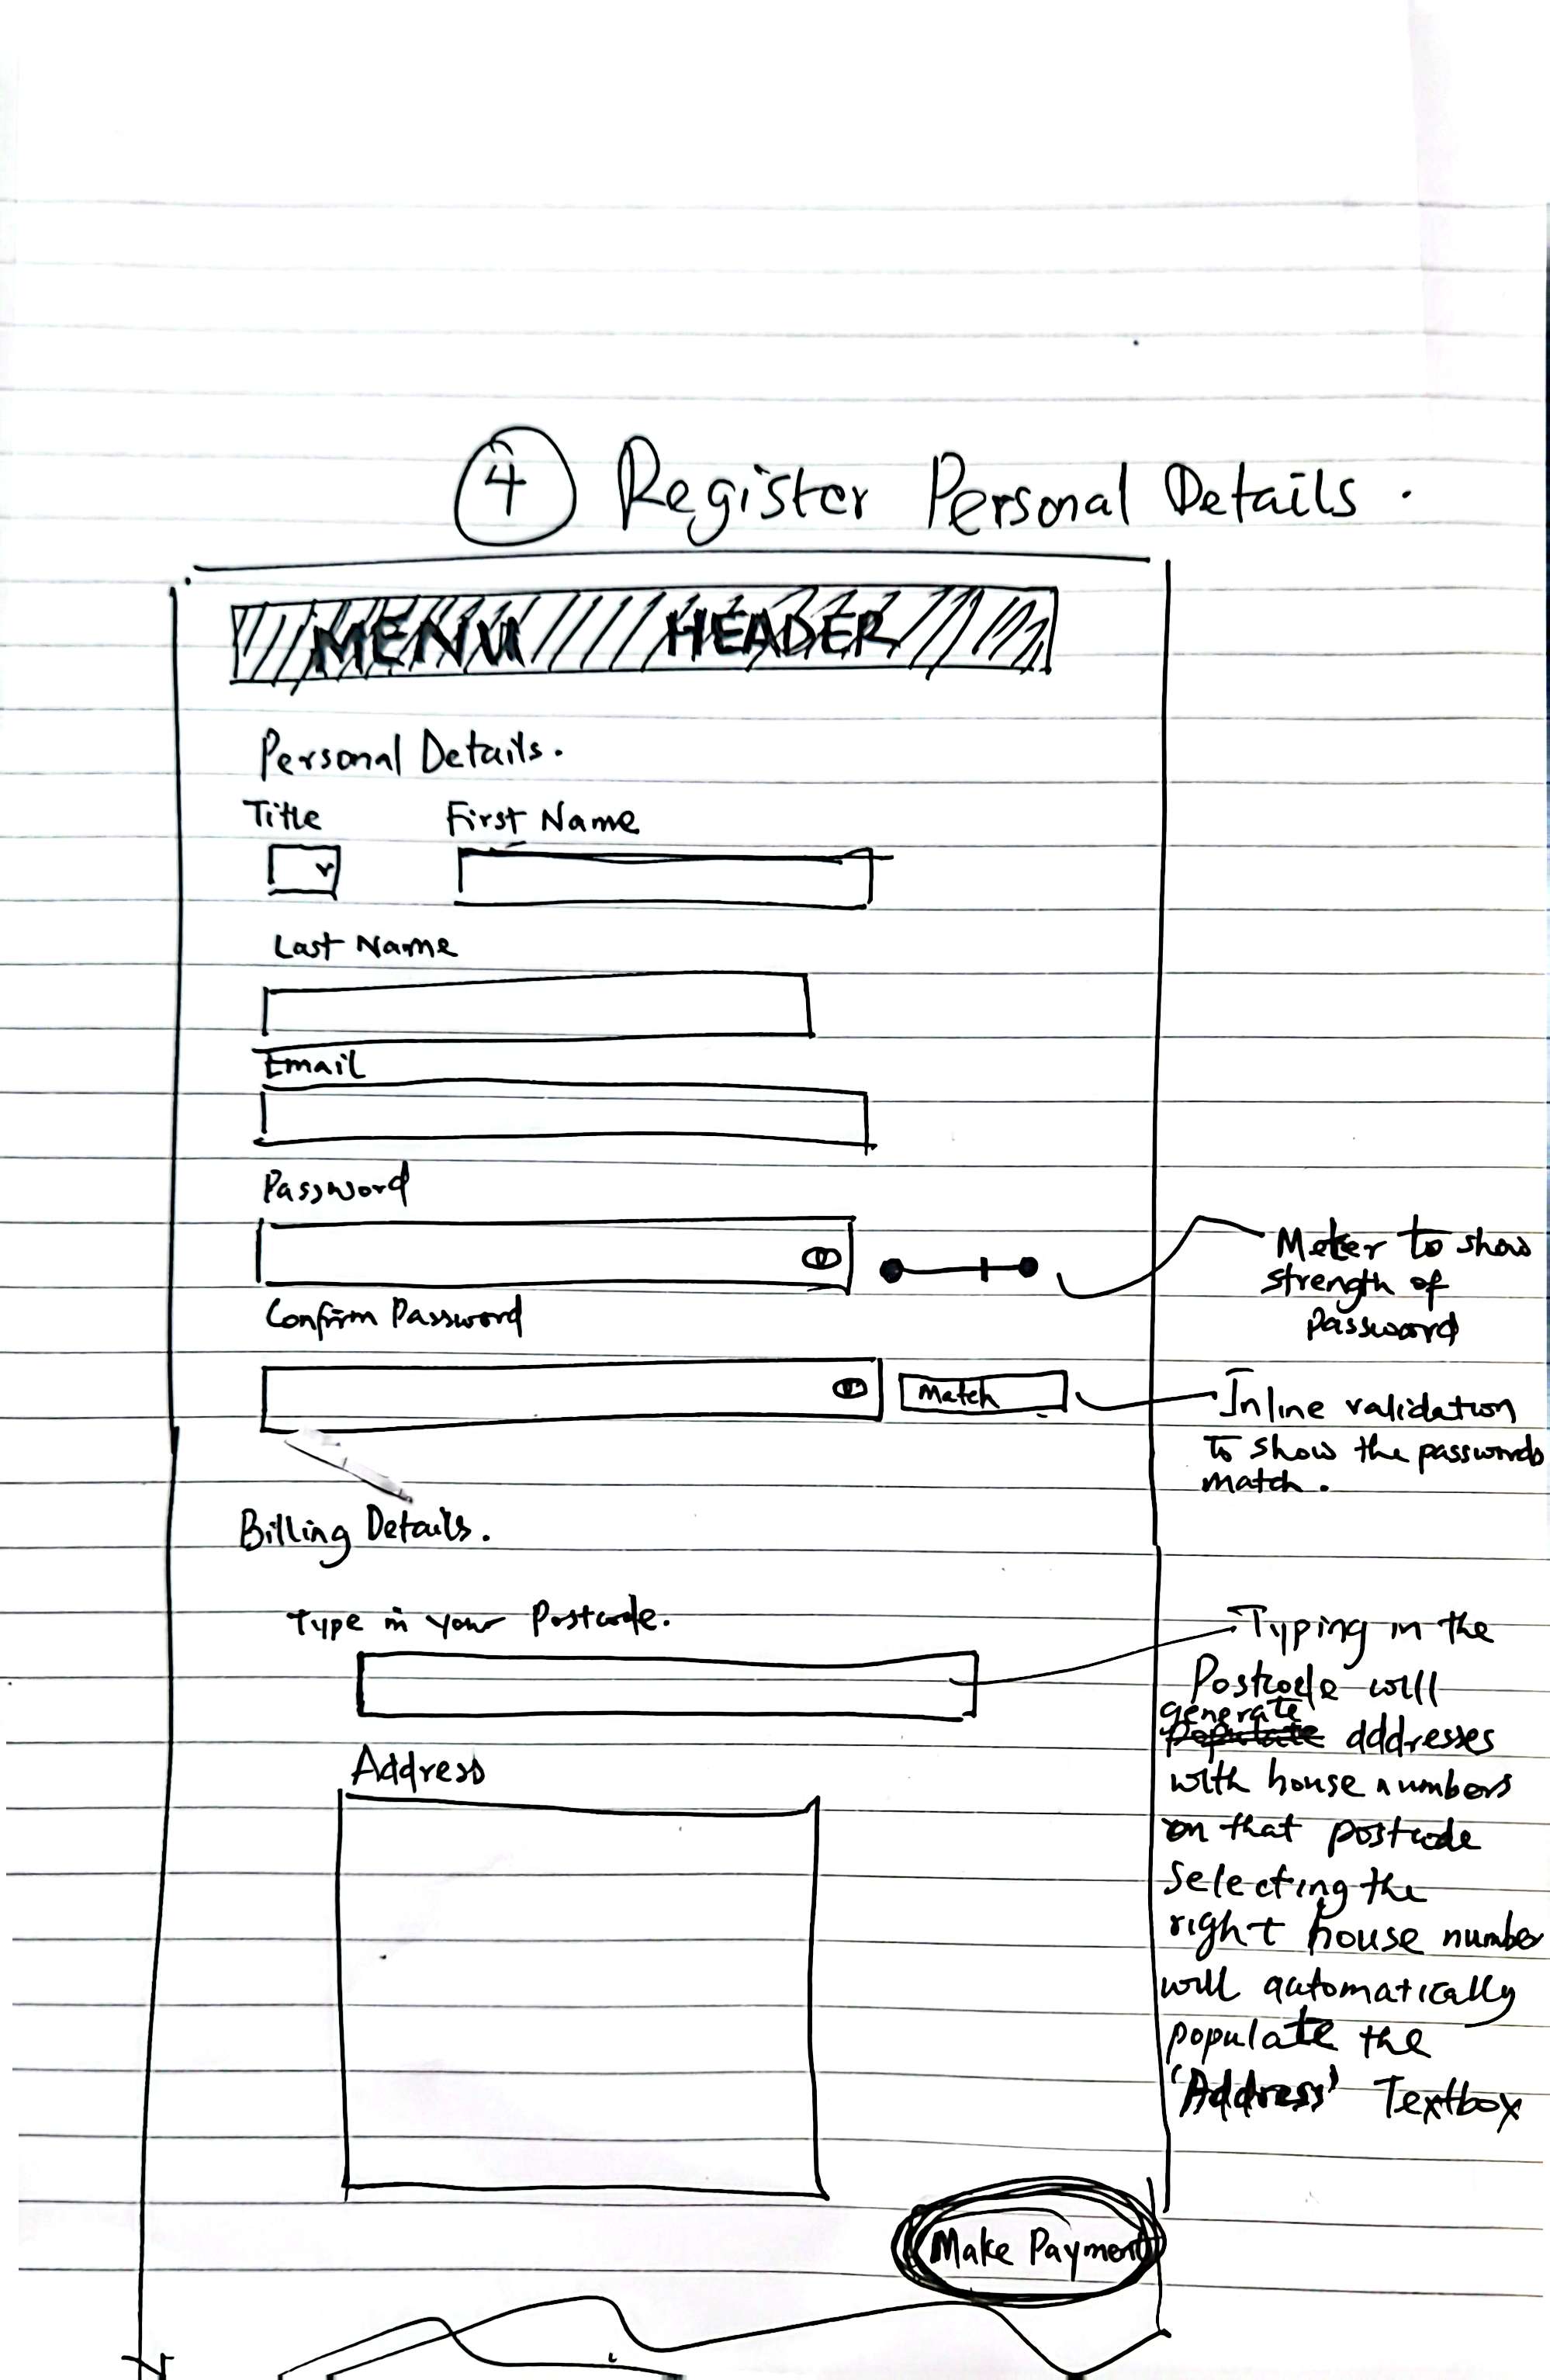 4 Register Personal Details.
MENU HEADER
Personal Details.
Title First Name
Last Name
Email
Password
Meter to show
strength of
password
Confirm Password
Match
Inline validation
to show the passwords
match.
Billing Details.
Type in your Postcode.
Typing in the
Postcode will
generate
populate dddresses
with house numbers
on that postcode
selecting the
right house number
will automatically
populate the
'Address' Textbox
Address
Make Payment